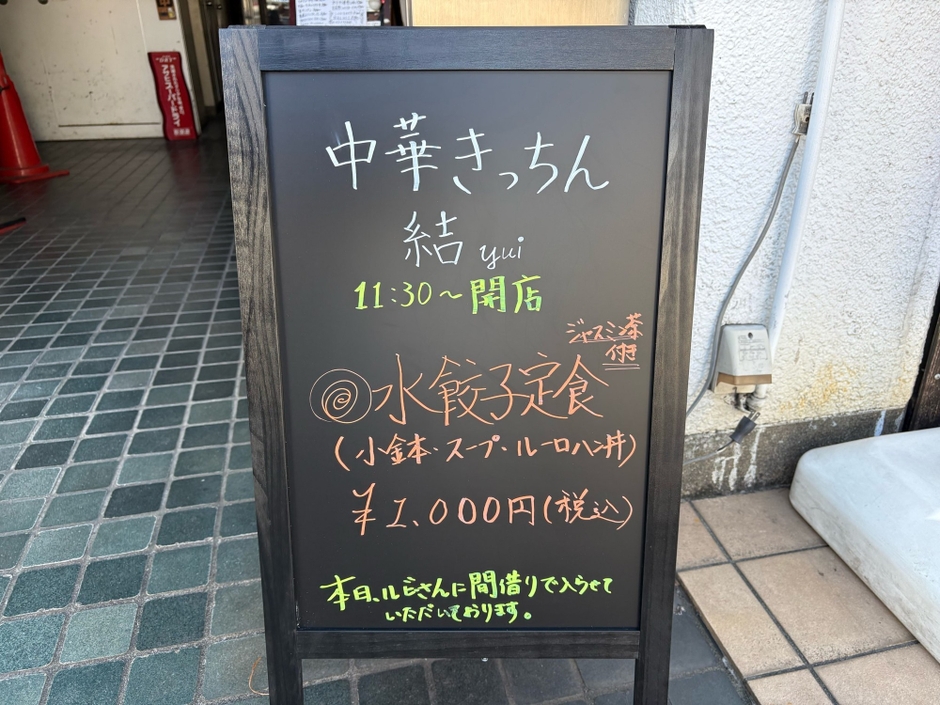 アサヒスーパードライ
中華きっちん
結 yui
11:30〜開店
ジャスミン茶
付き
水餃子定食
(小鉢・スープ・ルーロハン丼)
¥1,000円(税込)
本日、ルビさんに間借りで入らせて
いただいております。